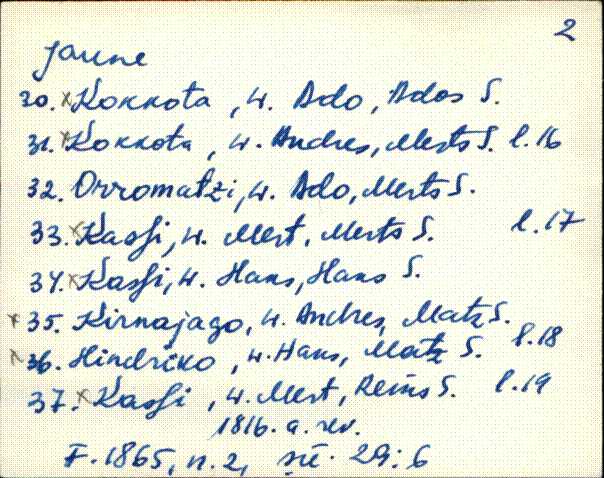 2
Jaune
30. x Kokkota, w. Ado, Ados S.
31. x Kokkota, w. Andres, Merts S. l. 16
32. Orromatzi, w. Ado, Merts S.
33. x Kassi, w. Mert, Merts S. l. 17
34. x Kassi, w. Hans, Hans S.
x 35. Kirnajago, w. Andres, Matz S.
x 36. Hindriko, w. Hans, Matz S. l. 18
37. x Kassi, w. Mert, Reins S. l. 19
1816. a. rev.
F. 1865, n. 2, sü. 29: 6